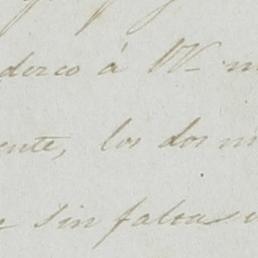 derco á W m
ente, los dos m
e Sin falta